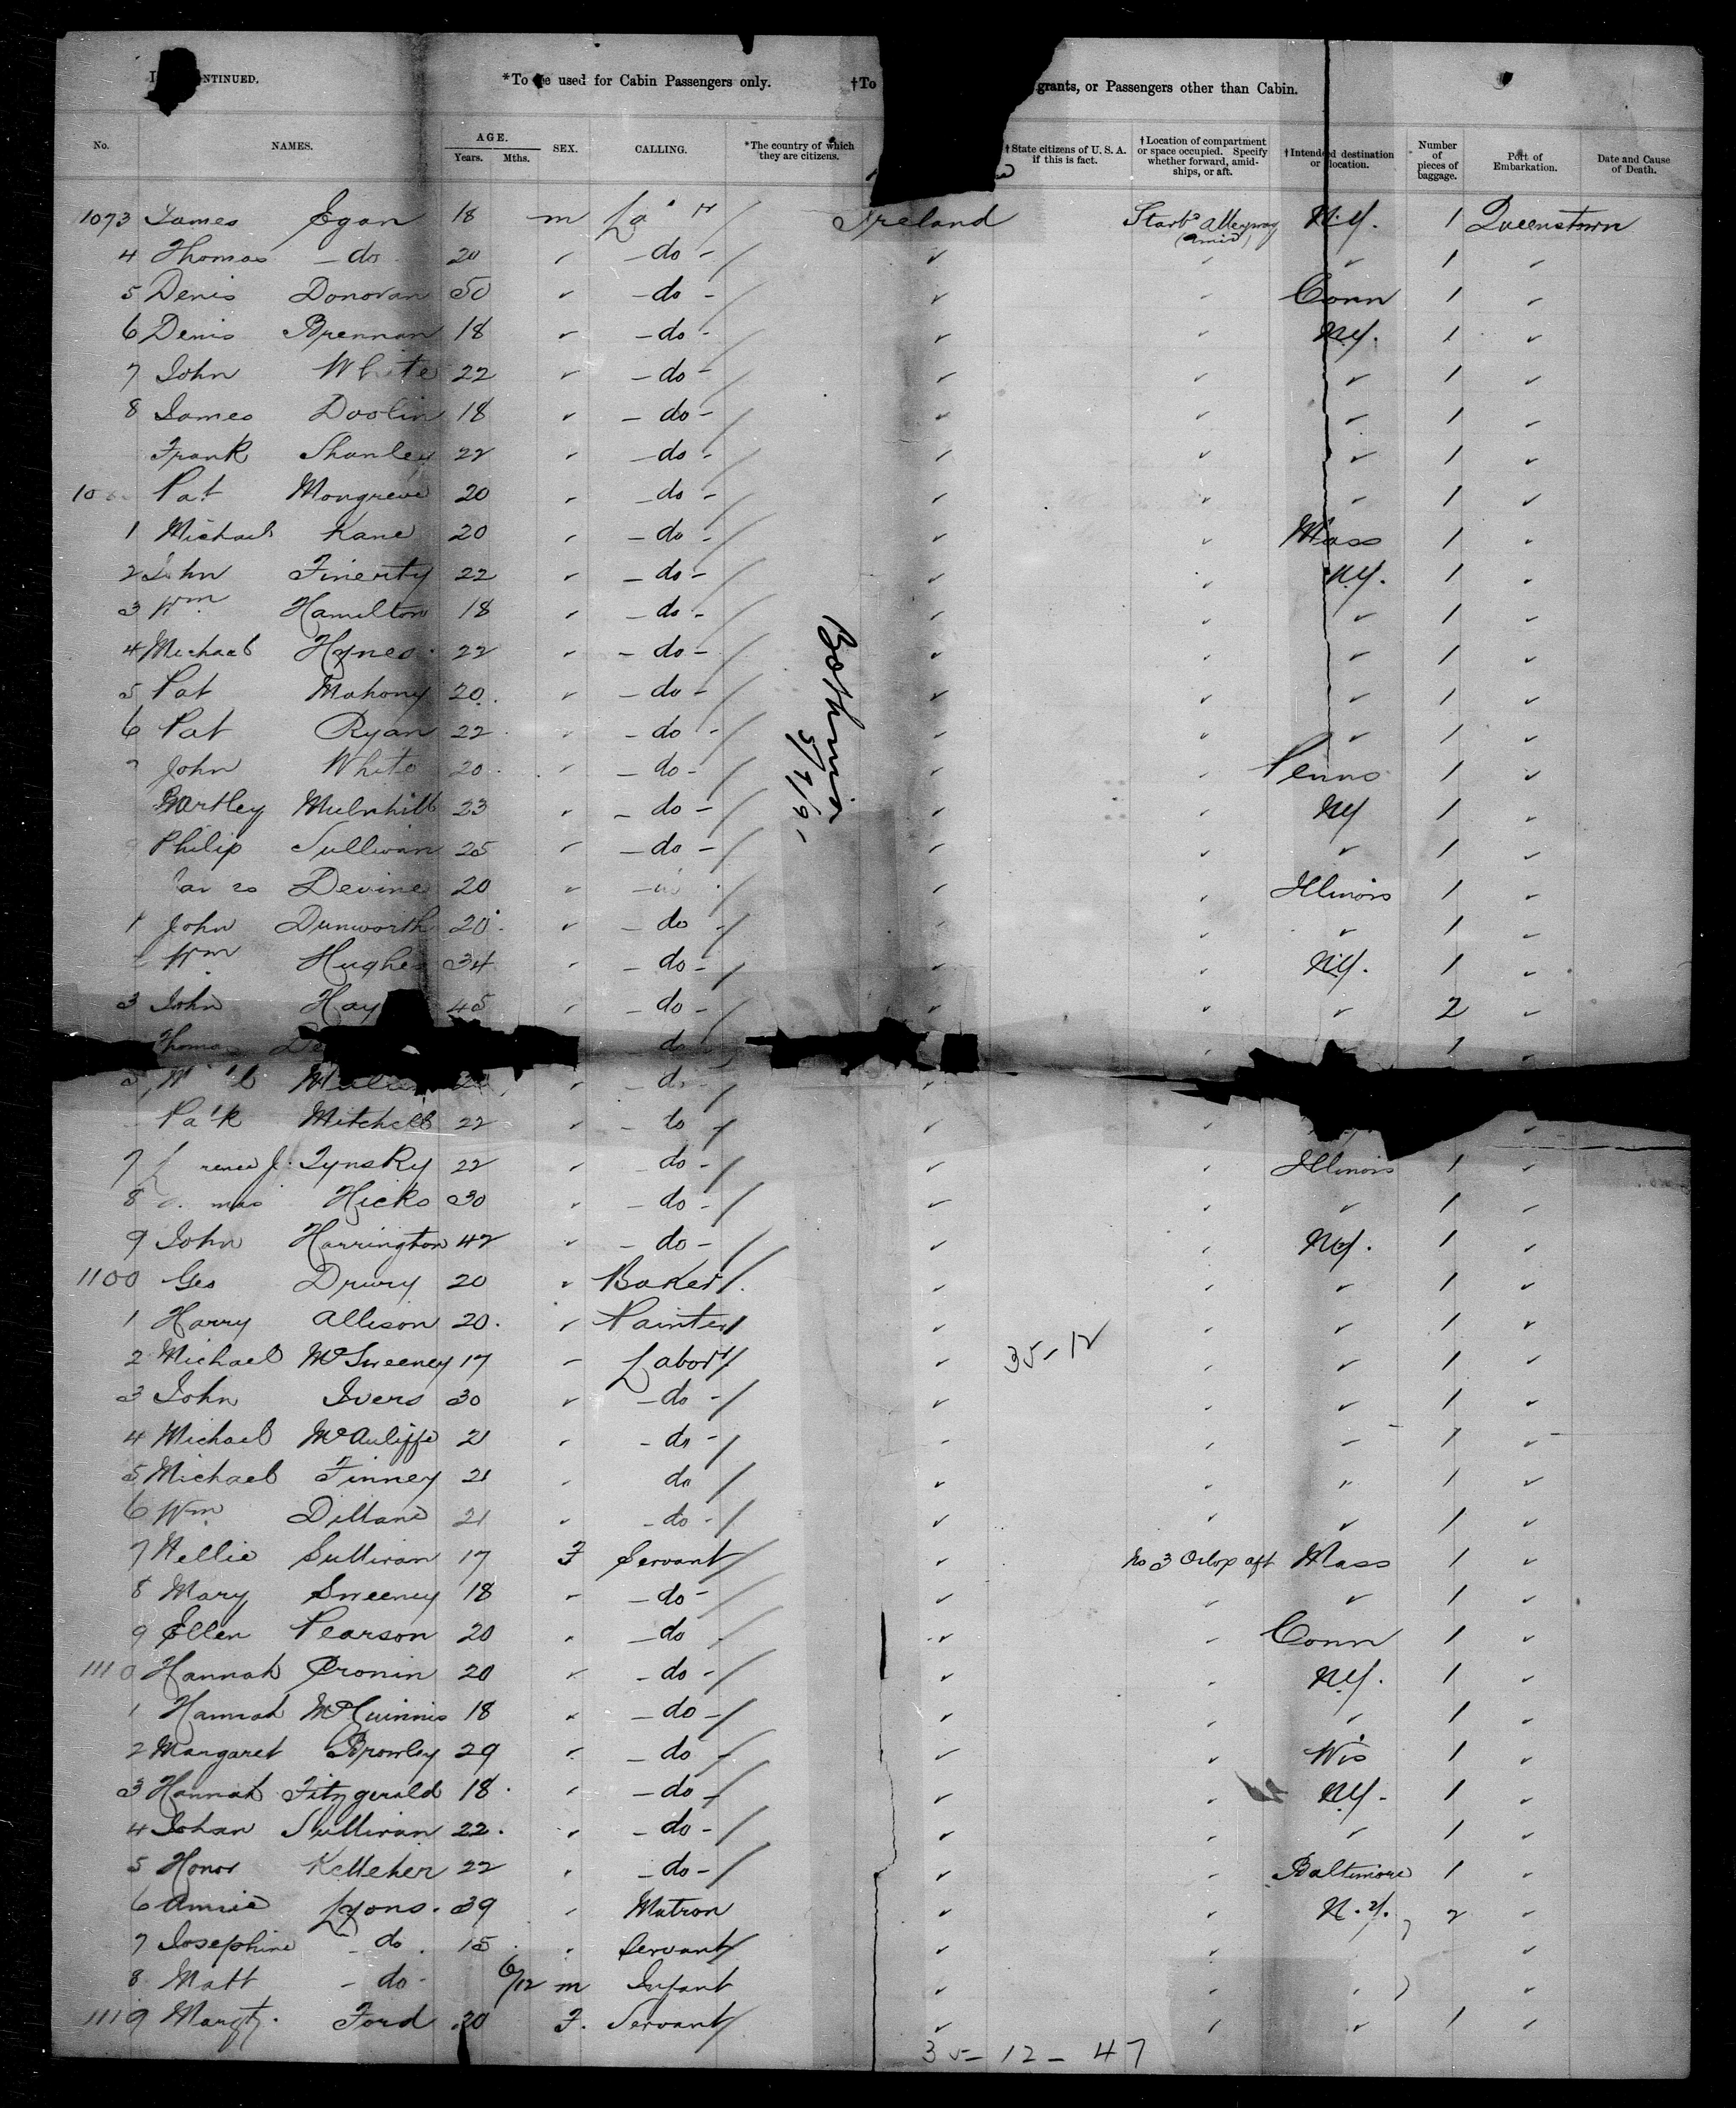 NTINUED. *To be used for Cabin Passengers only. †To grants, or Passengers other than Cabin.
No. NAMES. AGE. Years. Mths. SEX. CALLING. *The country of which they are citizens. †State citizens of U. S. A. if this is fact. †Location of compartment or space occupied. Specify whether forward, amidships, or aft. †Intended destination or location. Number of pieces of baggage. Port of Embarkation. Date and Cause of Death.
1073 James Egan 18 m Ireland Starbd alleyway (amid) N.Y. 1 Queenstown
4 Thomas - do 20 " - do - " " " 1 "
5 Denis Donovan 50 " - do - " " Conn 1 "
6 Denis Brennan 18 " - do - " " N.Y. 1 "
7 John White 22 " - do - " " " 1 "
8 James Doolin 18 " - do - " " " 1 "
Frank Shanley 22 " - do - " " " 1 "
10 Pat Mongreve 20 " - do - " " " 1 "
1 Michael Kane 20 " - do - " " Mass 1 "
2 John Finerty 22 " - do - " " N.Y. 1 "
3 Wm Hamilton 18 " - do - " " " 1 "
4 Michael Hynes 22 " - do - " " " 1 "
5 Pat Mahony 20 " - do - " " " 1 "
6 Pat Ryan 22 " - do - " " " 1 "
7 John White 20 " - do - " " Penna 1 "
Bartley Mulnhill 23 " - do - " " NY 1 "
Philip Sullivan 25 " - do - " " " 1 "
Devine 20 " " " Illinois 1 "
1 John Dunworth 20 " - do - " " " 1 "
Wm Hughes 34 " - do - " " N.Y. 1 "
3 John Hay 45 " - do - " " " 2 "
Thomas De do " 1 "
5 " - do - "
Pa k Mitchell 22 " - do - " " "
7 rence J. Tynsky 22 " - do - " " Illinois 1 "
8 mas Hicks 30 " - do - " " " 1 "
9 John Harrington 42 " - do - " " N.Y. 1 "
1100 Geo Drury 20 " Baker " " " 1 "
1 Harry Allison 20 " Painter " " " 1 "
2 Michael McSweeney 17 " Labor " 35-12 " " 1 "
3 John Ivers 30 " - do - " " " 1 "
4 Michael McAuliffe 21 " - do - " " " 1 "
5 Michael Finney 21 " do " " " 1 "
6 Wm Dillane 21 " - do - " " " 1 "
7 Nellie Sullivan 17 F Servant " No 3 Orlop aft Mass 1 "
8 Mary Sweeney 18 " - do - " " " 1 "
9 Ellen Pearson 20 " - do " " Conn 1 "
1110 Hannah Cronin 20 " - do - " " N.Y. 1 "
1 Hannah McGuinnis 18 " - do - " " " 1 "
2 Margaret Bromley 29 " - do - " " Wis 1 "
3 Hannah Fitzgerald 18 " - do - " " N.Y. 1 "
4 Johan Sullivan 22 " - do - " " " 1 "
5 Honor Kelleher 22 " - do - " " Baltimore 1 "
6 Annie Lyons 39 " Matron " " N.Y. 2 "
7 Josephine - do 15 " Servant " " "
8 Matt - do - 6/12 m Infant " " " "
1119 Margt. Ford 20 F. Servant " " " 1 "
35-12-47